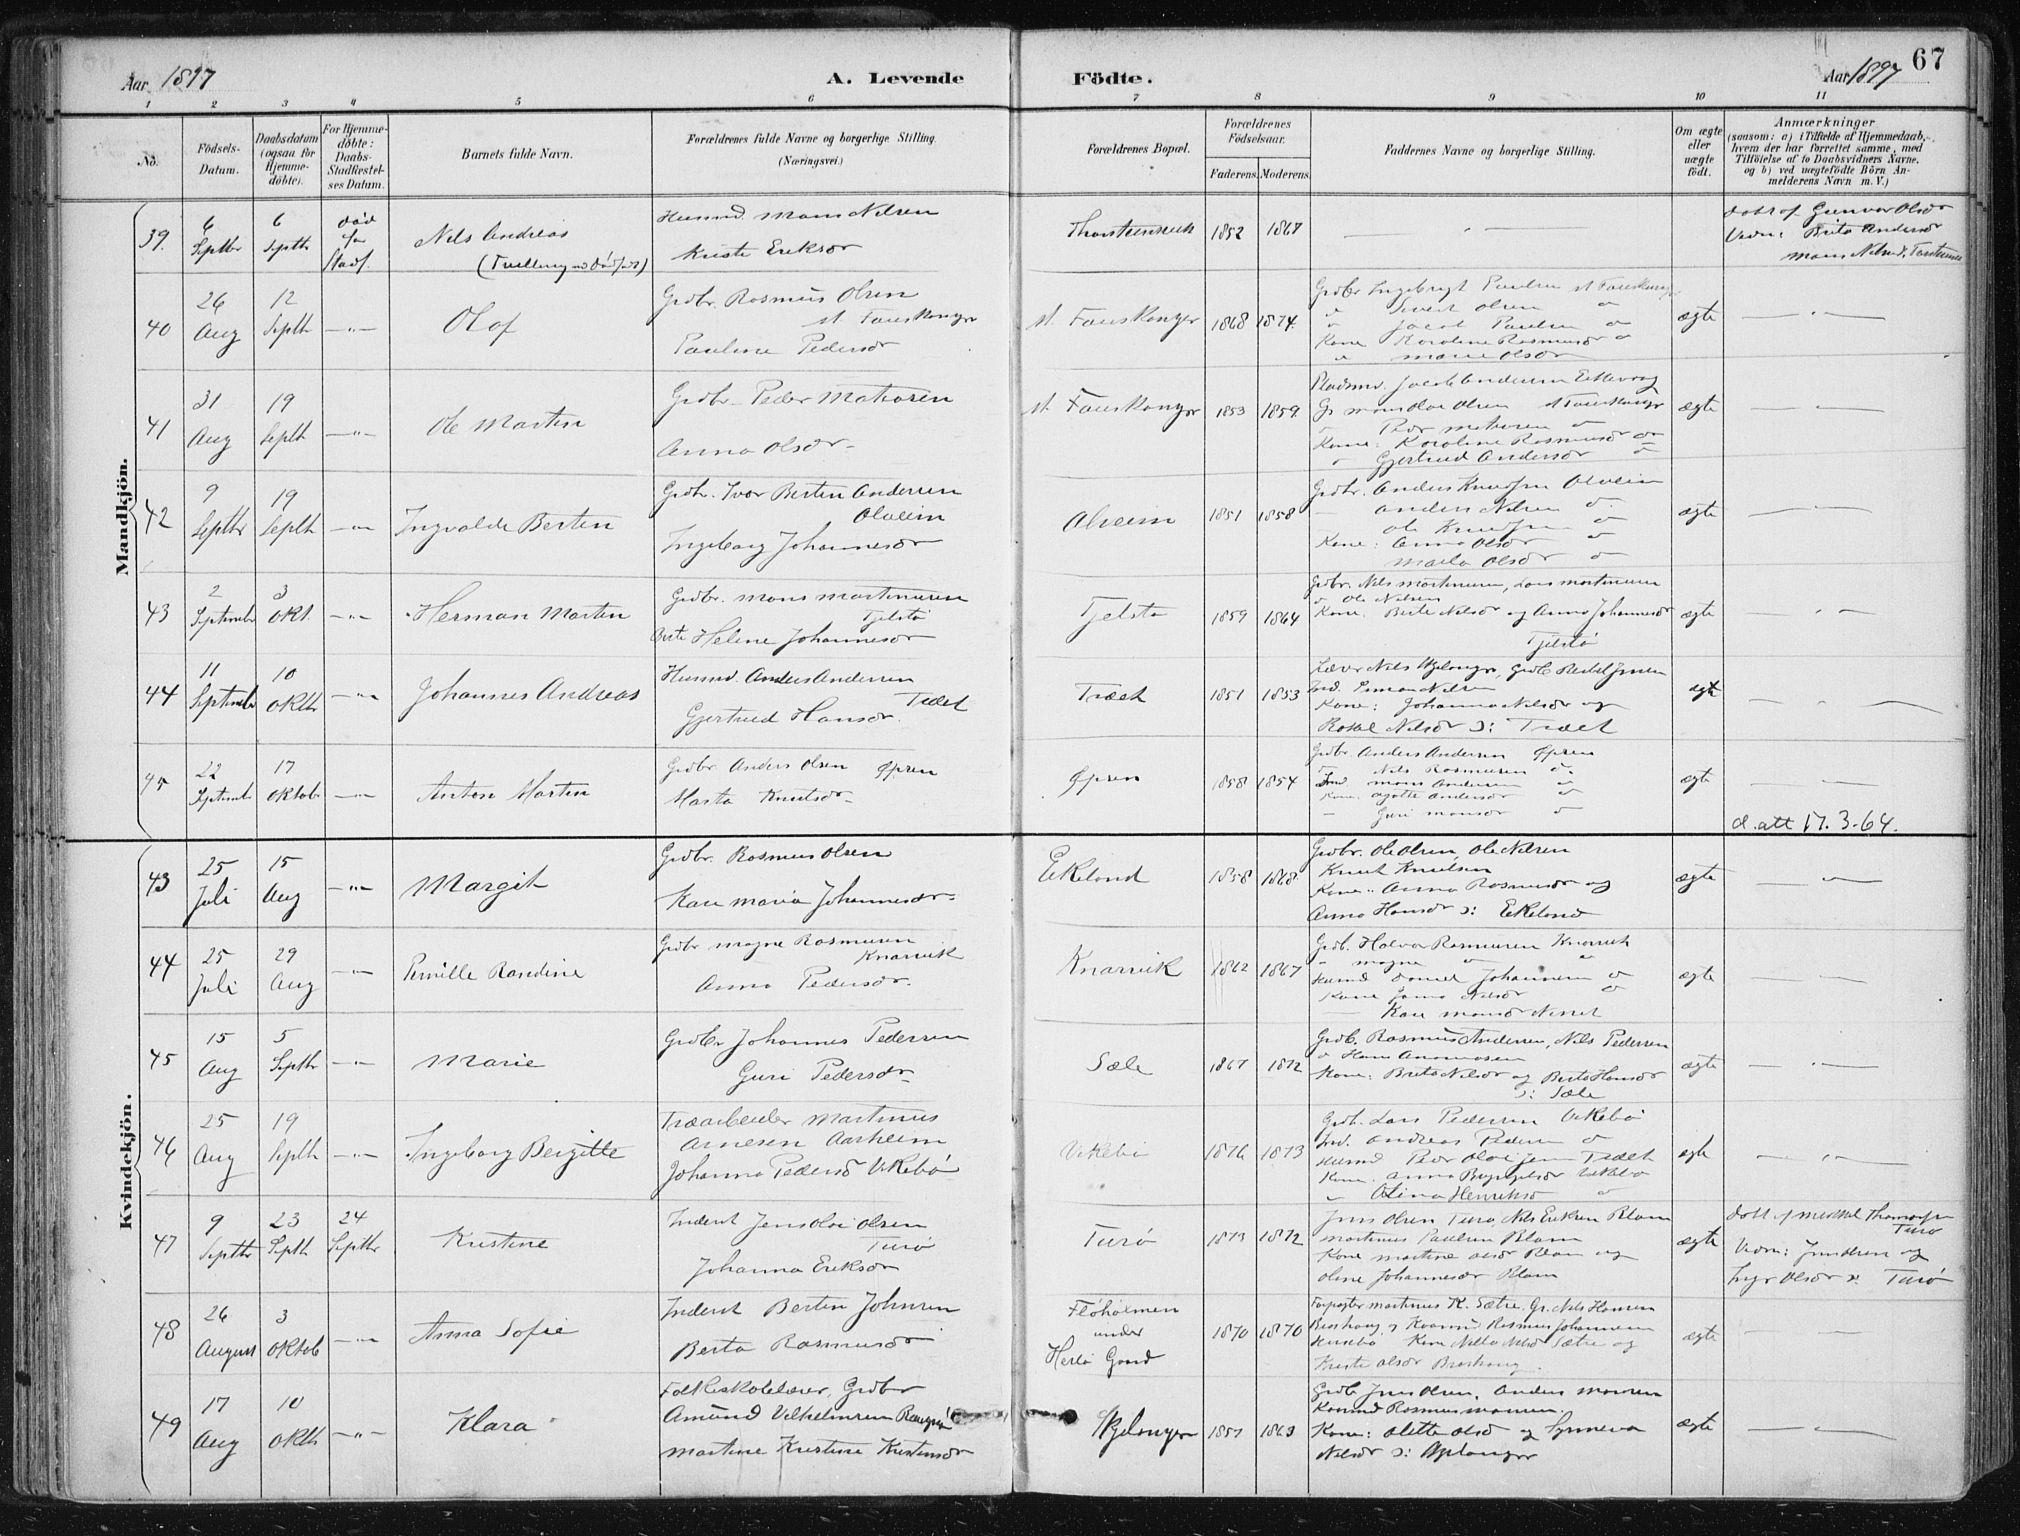 Aar 1897
A. Levende
Födte.
Aar 1897
67
1 2 3 4 5 6 7 8 9 10 11
No.
Födsels-Datum.
Daabsdatum (ogsaa for Hjemme-döbte).
For Hjemme-döbte: Daabs-Stadfæstel-ses Datum.
Barnets fulde Navn.
Forældrenes fulde Navne og borgerlige Stilling. (Næringsvei.)
Forældrenes Bopæl.
Forældrenes Födselsaar.
Faderens. Moderens.
Faddernes Navne og borgerlige Stilling.
Om ægte eller uægte födt.
Anmærkninger
(saasom: a) i Tilfælde af Hjemmedaab, hvem der har forrettet samme, med Tilföielse af to Daabsvidners Navne, og b) ved uægtefödte Börn An-melderens Navn m. V.)
Mandkjön.
39. 6 Septbr 6 Septbr død før stadf.
Nils Andreas
(Tvilling
Husmd. Mons Nilsen
Kriste Eriksdr
1852 1867
Gunvor Olsdr
Vidn: Brita Andersdr
Mons Nilsen
40 26 Aug 12 Septb —"—
Olaf
Grdbr. Rasmus Olsen
st. Fauskanger
Pauline Pedersdr
st. Fauskanger
1868 1874.
Grdbr Ingebrigt Paulsen st Fauskanger
" Sivert Olsen "
" Jacob Paulsen "
Kone Karoline Rasmusdr "
" Marie Olsdr
ægte
41 31 Aug 19 Septb —"—
Ole Martin
Grdbr. Peder Mathisen
Anna Olsdr
st. Fauskanger
1853 1859.
Pladsmd. Jacob Andersen
Gr Mons Olai Olsen st Fauskanger
Peder Mathisen
Kone: Karoline Rasmusdr
" Gjertrud Andersdr "
ægte
42 9 Septbr 19 Septb —"—
Ingvald Bertin
Grdbr. Ivar Bertin Andersen
Alveim
Ingeborg Johannesdr
Alveim
1851 1858
Grdbr. Anders Knudsen Alveim
— Anders Nilsen
Ole Knudsen
Kone: Anna Olsdr
Marta Olsdr
ægte
43 2 Septembr 3 Okt. —"—
Herman Martin
Grdbr. Mons Martinusen
Tjelstø
Berte Helene Johannesdr
Tjelstø
1859 1864
Grdbr. Nils Martinusen, Lars Martinusen
" Ole Nilsen
Kone Berte Nilsdr og Anna Johannesdr
Tjelstø
ægte
44 11 Septembr 10 Oktbr —"—
Johannes Andreas
Husmd. Anders Andersen
Træet
Gjertrud Hansdr.
Træet
1851 1853
Lærer Nils
Ind. Simon Nilsen
Kone: Johanna Nilsdr og
Nilsdr ɔ: Træet
ægte
45 22 Septembr 17 Oktobr —"—
Anton Martin
Grdbr Anders Olsen Øpsen
Marta Knutsdr
Øpsen
1858 1854
Grdbr Anders Andersen Øpsen
Nils Rasmusen
Ind. Mons Andersen
Kone. Agathe Andersdr
— Guri Monsdr
ægte
d.att 17.3-64.
Kvindekjön.
43 25 Juli 15 Aug —"—
Margit
Grdbr. Rasmus Olsen
Kari Maria Johannesdr
Ekeland
1858 1868
Grdbr. Ole Olsen Ole Nilsen
Knut Knutsen
Kone: Anna Rasmusdr og
Anna Hansdr ɔ: Ekeland
ægte
44 25 Juli 29 Aug —"—
Pernille Randine
Grdbr Magne Rasmusen
Knarvik
Anna Pedersdr.
Knarvik
1862 1867
Grdb. Halvor Rasmusen Knarvik
" Magne
Husmd Daniel Johannesen
Kone Janna Nilsdr
— Kari Monsdr
ægte
45 15 Aug 5 Septbr —"—
Marie
Grdbr Johannes Pedersen
Guri Pedersdr
Sæle
1867 1872
Grdb. Rasmus Andersen, Nils Pedersen
" Hans
Kone: Brita Nilsdr og Berta Hansdr
ɔ: Sæle
ægte
46 25 Aug 19 Septb —"—
Ingeborg Bergitte
Træarbeider Martinus
Arnesen Aarheim
Johanna Pedersd Vikebø
Vikebø
1876 1873
Grdb. Lars Pedersen Vikebø
Ind. Andreas Pedersen
Husmd Peder Olai Jensen Træet
Kone. Anna Vikebø
" Olina Henriksd "
ægte
47 9 Septbr 23 Septb 24 Septbr
Kristine
Inderst Jens Olai Olsen
Turø
Johanna Eriksdr
Turø
1873 1872
Jens Olsen Turø, Nils Eriksen Blom
Martinus Paulsen Blom
Kone Martine Olsdr Blom og
Oline Johannesdr Blom
ægte
Turø
Vidn: og
Olsdr ɔ: Turø
48 26 August 3 Oktob —"—
Anna Sofie
Inderst Bertin Johnsen
Berta Rasmusdr
Fløholmen
under
Herlø Gaard
1870 1870
Martinus K. Sætre. Gr. Nils Hansen
Rasmus Johannesen
Husebø Kone Sætre og
Kriste Olsdr
ægte
49 17 Aug 10 Oktb —"—
Klara
Folkeskolelærer, Grdbr
Amund Vilhelmsen
Martine Kristine Kristensdr
1857 1863
Grdb Jens Olsen, Anders Monsen
Rasmus Monsen.
Kone: Olette Olsd og Synneva
Nilsdr ɔ:
ægte